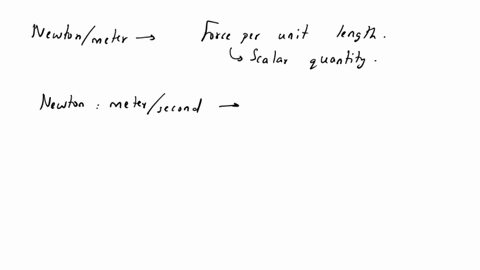 Newton/meter → Force per unit length.
↳ Scalar quantity.
Newton : meter/second →